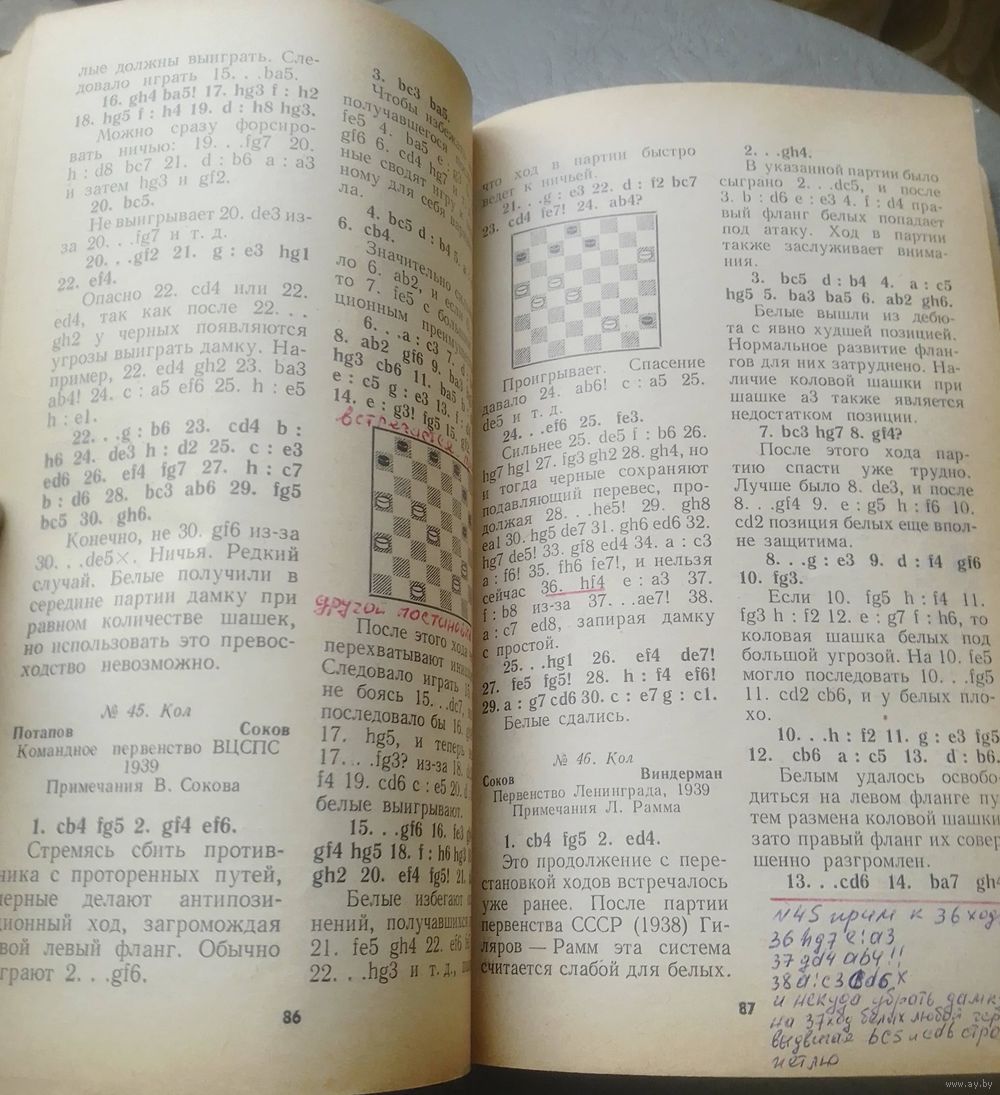 лые должны выиграть. Сле-
довало играть 15. . .ba5.
16. gh4 ba5! 17. hg3 f : h2
18. hg5 f : h4 19. d : h8 hg3.
Можно сразу форсиро-
вать ничью: 19. . .fg7 20.
h : d8 bc7 21. d : b6 a : a3
и затем hg3 и gf2.
20. bc5.
Не выигрывает 20. de3 из-
за 20. . .fg7 и т. д.
20. . .gf2 21. g : e3 hg1
22. ef4.
Опасно 22. cd4 или 22.
ed4, так как после 22. . .
gh2 у черных появляются
угрозы выиграть дамку. На-
пример, 22. ed4 gh2 23. ba3
ab4! 24. c : a5 ef6 25. h : e5
h : e1.
22. . .g : b6 23. cd4 b :
h6 24. de3 h : d2 25. c : e3
ed6 26. ef4 fg7 27. h : c7
b : d6 28. bc3 ab6 29. fg5
bc5 30. gh6.
Конечно, не 30. gf6 из-за
30. . .de5×. Ничья. Редкий
случай. Белые получили в
середине партии дамку при
равном количестве шашек,
но использовать это превос-
ходство невозможно.
№ 45. Кол
Потапов Соков
Командное первенство ВЦСПС
1939
Примечания В. Сокова
1. cb4 fg5 2. gf4 ef6.
Стремясь сбить против-
ника с проторенных путей,
черные делают антипози-
ционный ход, загромождая
свой левый фланг. Обычно
играют 2. . .gf6.
86
3. bc3 ba5.
Чтобы избежать
получавшегося
fe5 4. ba5 e :
gf6 6. cd4 hg7 и т.
ные сводят игру к
ному для себя
ла.
4. bc5 d : b4 5.
6. cb4.
Значительно
ло 6. ab2, и если 6.
то 7. fe5 с
ционным преиму
6. . .a : c3 7. d :
8. ab2 gf6 9. ba3
hg3 cb6 11. ba5 b
e : c5 g : e3 13. f :
14. e : g3! fg5 15.
встречается
другой постановк
После этого хода
перехватывают иниц
Следовало играть 15.
не боясь 15. . .dc7,
последовало бы 16.
17. hg5, и теперь
17. . .fg3? из-за 18.
f4 19. cd6 c : e5 20.
белые выигрывают.
15. . .gf6 16. fe3
gf4 hg5 18. f : h6 hg3
gh2 20. ef4 fg5! 21.
Белые избегают
нений, получавшихся
21. fe5 gh4 22. ef6
22. . .hg3 и т. д.,
что ход в партии быстро
ведет к ничьей.
21. . .g : e3 22. d : f2 bc7
23. cd4 fe7! 24. ab4?
Проигрывает. Спасение
давало 24. ab6! c : a5 25.
de5 и т. д.
24. . .ef6 25. fe3.
Сильнее 25. de5 f : b6 26.
hg7 hg1 27. fg3 gh2 28. gh4, но
и тогда черные сохраняют
подавляющий перевес, про-
должая 28. . .he5! 29. gh8
ea1 30. hg5 de7 31. gh6 ed6 32.
hg7 de5! 33. gf8 ed4 34. a : c3
a : f6! 35. fh6 fe7!, и нельзя
сейчас 36. hf4 e : a3 37.
f : b8 из-за 37. . .ae7! 38.
a : c7 ed8, запирая дамку
с простой.
25. . .hg1 26. ef4 de7!
27. fe5 fg5! 28. h : f4 ef6!
29. a : g7 cd6 30. c : e7 g : c1.
Белые сдались.
№ 46. Кол
Соков Виндерман
Первенство Ленинграда, 1939
Примечания Л. Рамма
1. cb4 fg5 2. ed4.
Это продолжение с пере-
становкой ходов встречалось
уже ранее. После партии
первенства СССР (1938) Ги-
ляров — Рамм эта система
считается слабой для белых.
87
2. . .gh4.
В указанной партии было
сыграно 2. . .dc5, и после
3. b : d6 e : e3 4. f : d4 пра-
вый фланг белых попадает
под атаку. Ход в партии
также заслуживает внима-
ния.
3. bc5 d : b4 4. a : c5
hg5 5. ba3 ba5 6. ab2 gh6.
Белые вышли из дебю-
та с явно худшей позицией.
Нормальное развитие флан-
гов для них затруднено. На-
личие коловой шашки при
шашке a3 также является
недостатком позиции.
7. bc3 hg7 8. gf4?
После этого хода пар-
тию спасти уже трудно.
Лучше было 8. de3, и после
8. . .gf4 9. e : g5 h : f6 10.
cd2 позиция белых еще впол-
не защитима.
8. . .g : e3 9. d : f4 gf6
10. fg3.
Если 10. fg5 h : f4 11.
fg3 h : f2 12. e : g7 f : h6, то
коловая шашка белых под
большой угрозой. На 10. fe5
могло последовать 10. . .fg5
11. cd2 cb6, и у белых пло-
хо.
10. . .h : f2 11. g : e3 fg5
12. cb6 a : c5 13. d : b6.
Белым удалось освобо-
диться на левом фланге пу-
тем размена коловой шашки
зато правый фланг их совер
шенно разгромлен.
13. . .cd6 14. ba7 gh4
N45 прим к 36 ход
36 hg7 e:a3
37 gd4 ab4!!
38 a:c3 cd6 X
и некуда убрать дамк
на 37 ход белых любой
выдвигая bc5 и cd6 стро
петлю
www.ay.by